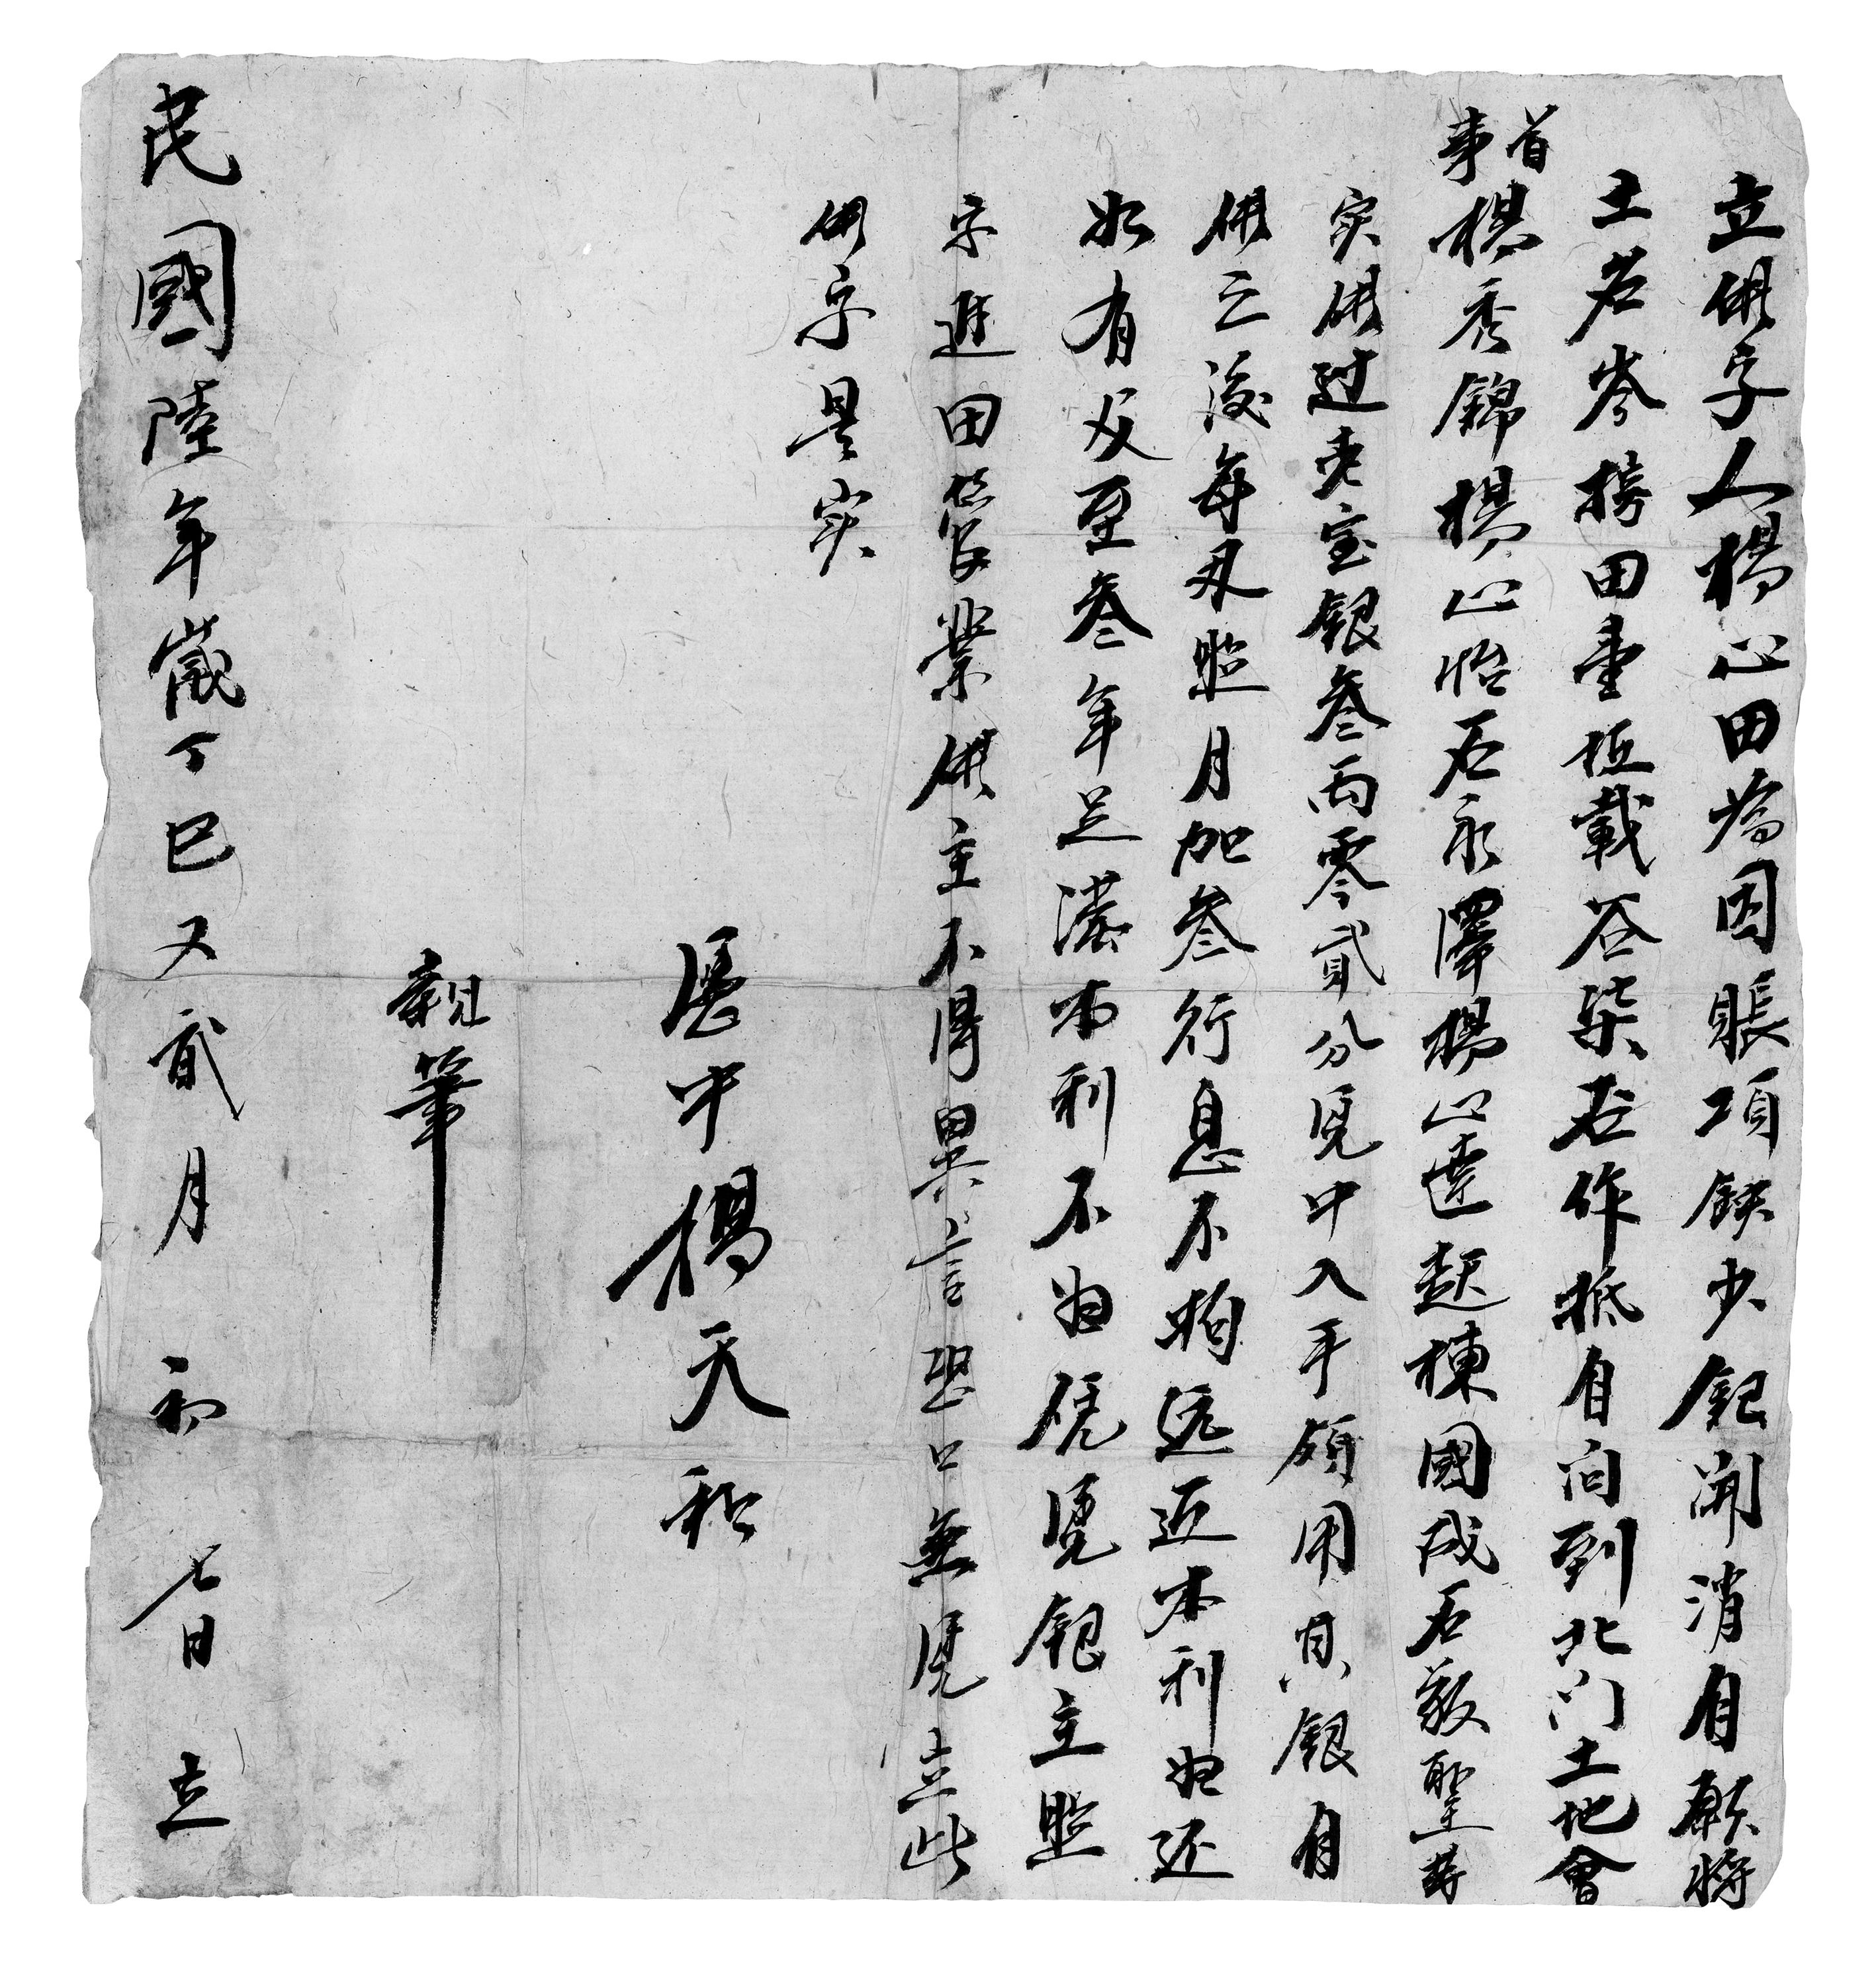 立借字人楊心田為因賬項缺少銀開消自願將
土名岑榜田壹坵載谷柒石作抵自问到北门土地會
首事楊秀錦楊心怡石永澤楊心達趙棟國成石敬聖等
实借过老宝銀叁両零貳分凭中入手領用其銀自
借之後每両照月加叁行息不拘远近本利归还
如有父至叁年足滿本利不归凭凴銀主照
字進田管業借主不得異言恐口無凭立此
借字是实
凭中楊天和
親筆
民國陸年歲丁巳又貳月初七日立